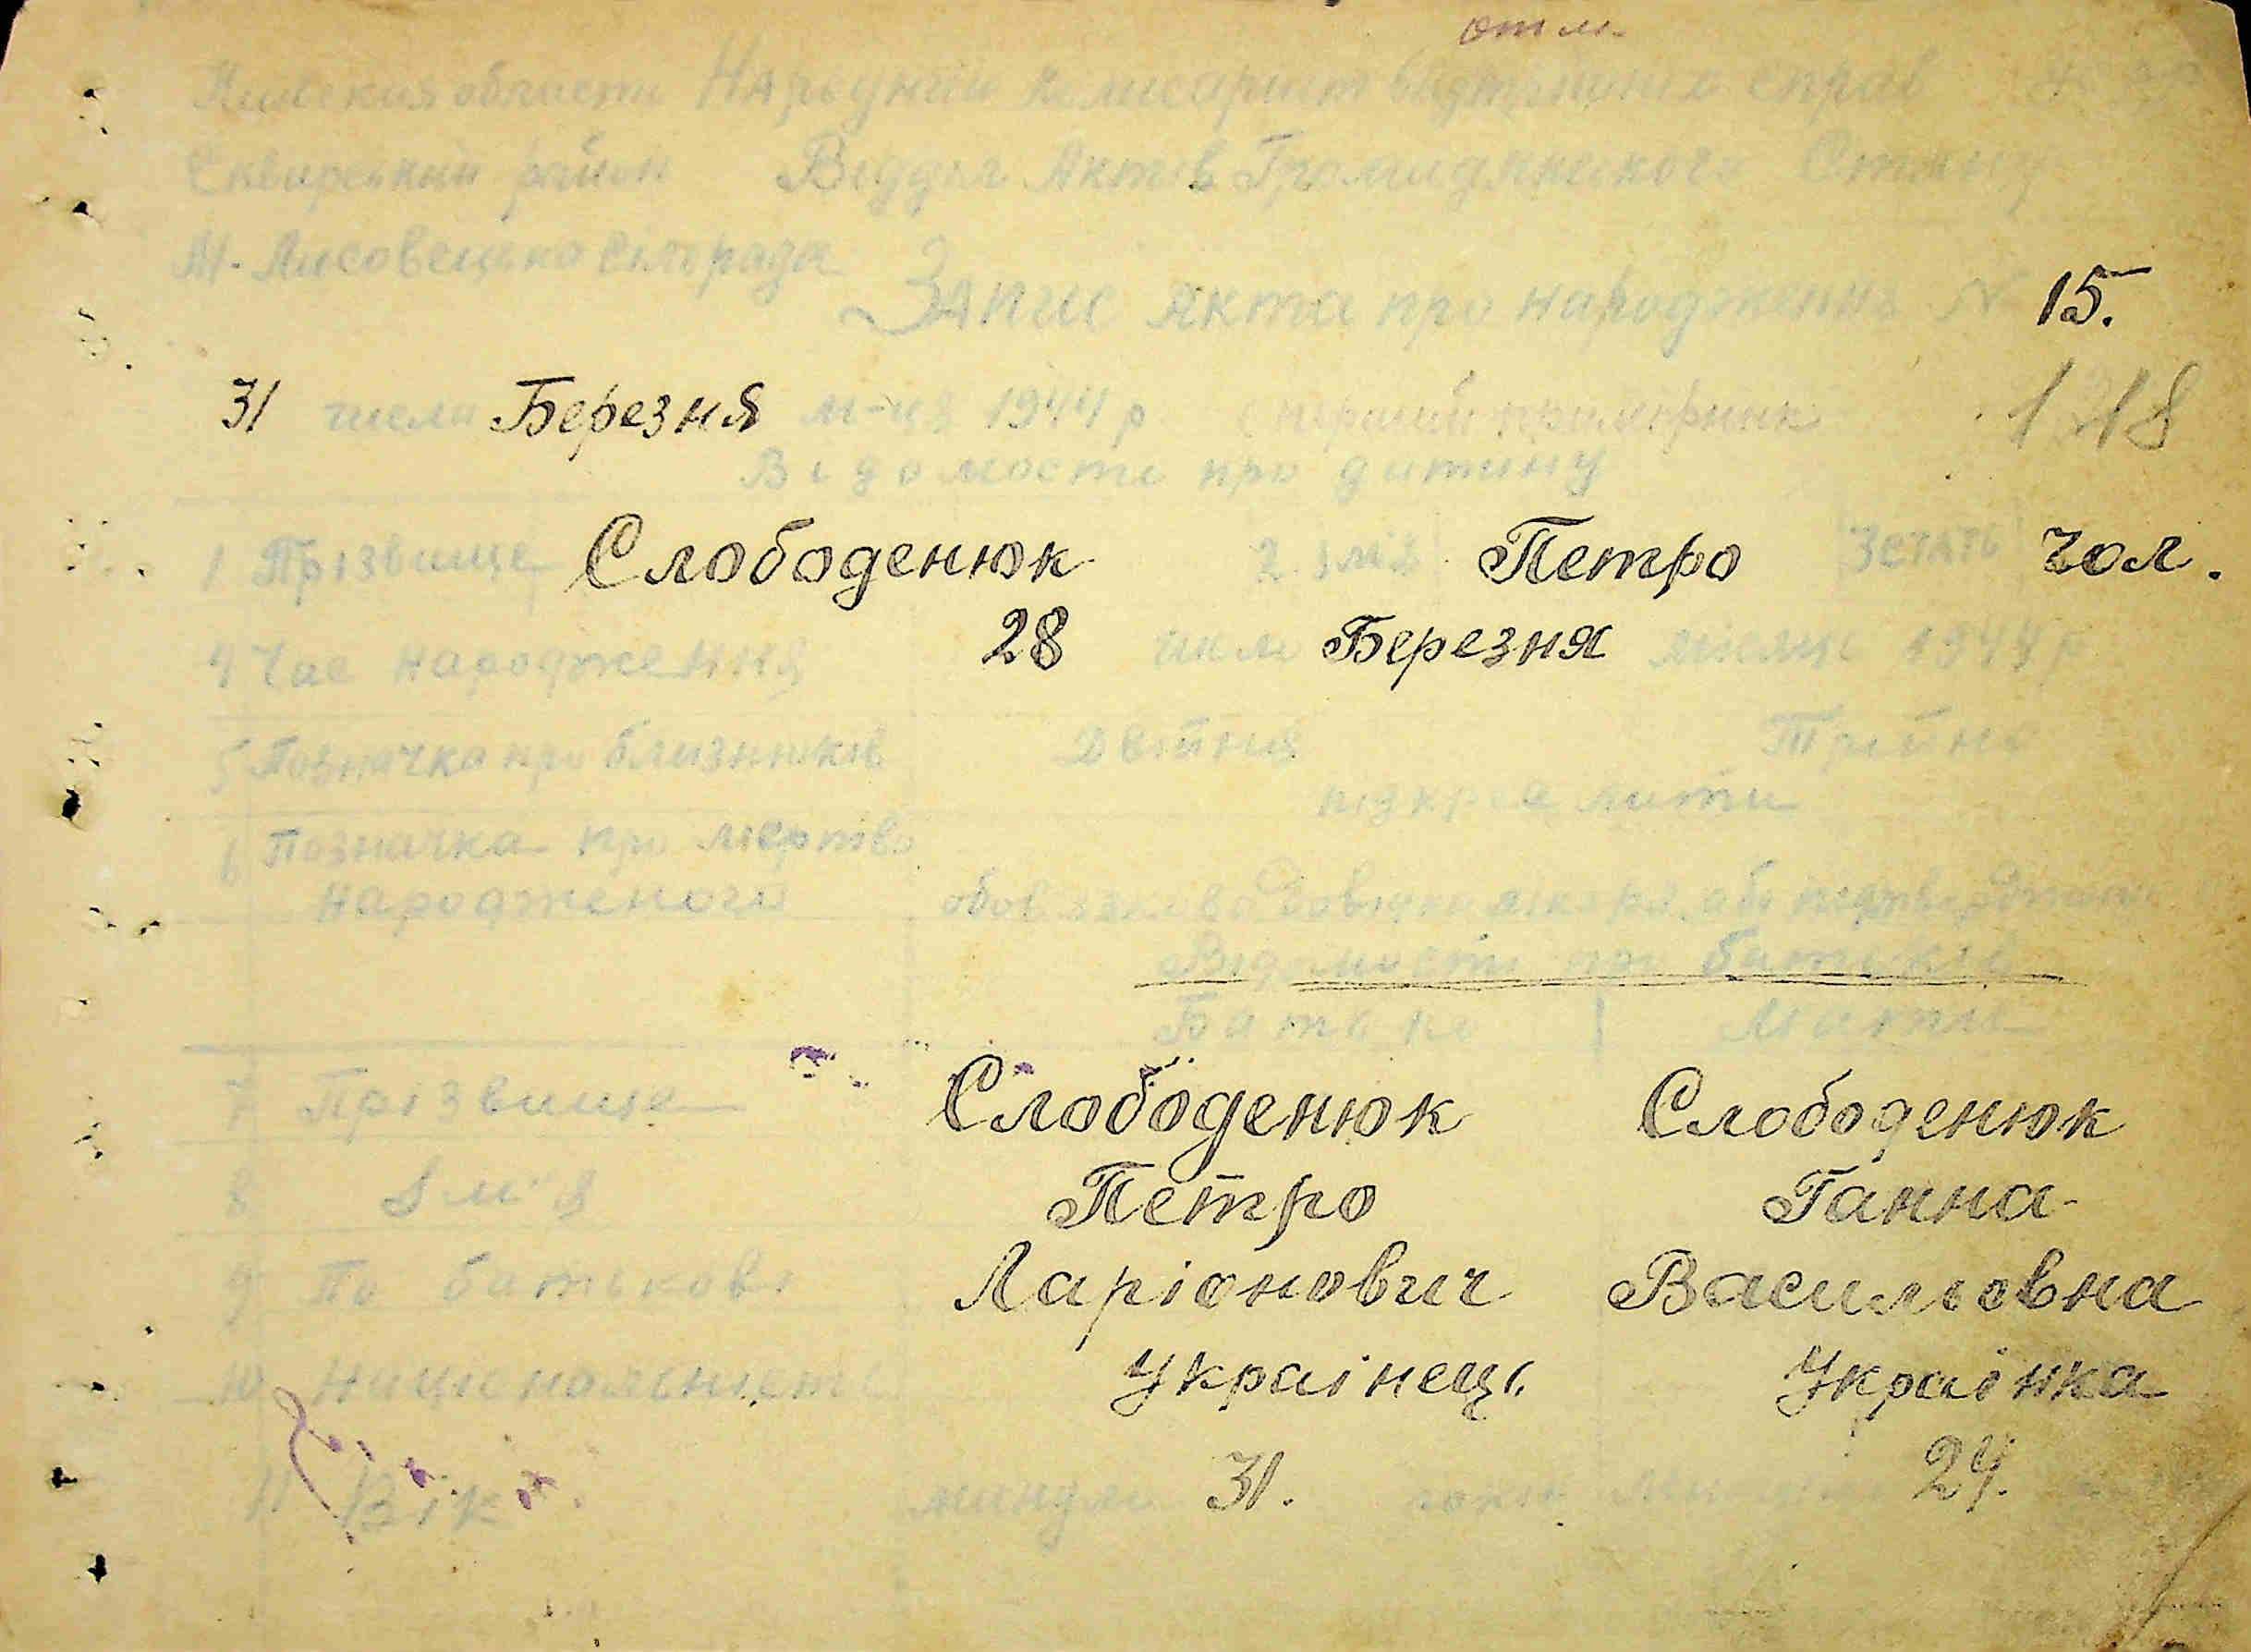 отм.
области Народний Комисариат справ
Сквирський район Віддил Актів Громадянського Стану
М. Лисовецька сільрада
Запис акта про народження N 15.
31 числа Березня м-ця 1944 р перший примірник 1318
Відомості про дитину
1 Прізвище Слободенюк 2 Імя Петро 3 стать чол.
4 Час народження 28 числ Березня місяця 1944 р
5 Позначка про близнюків Двійня Трійня
підкреслити
6 Позначка про мертво
народженого
Відомості про батьків
Батько Мати
7 Прізвище Слободенюк Слободенюк
8 Ім'я Петро Ганна
9 По батькові Ларіонович Васильовна
10 Національність Украінець Украінка
11 Вік минуло 31. років 24.